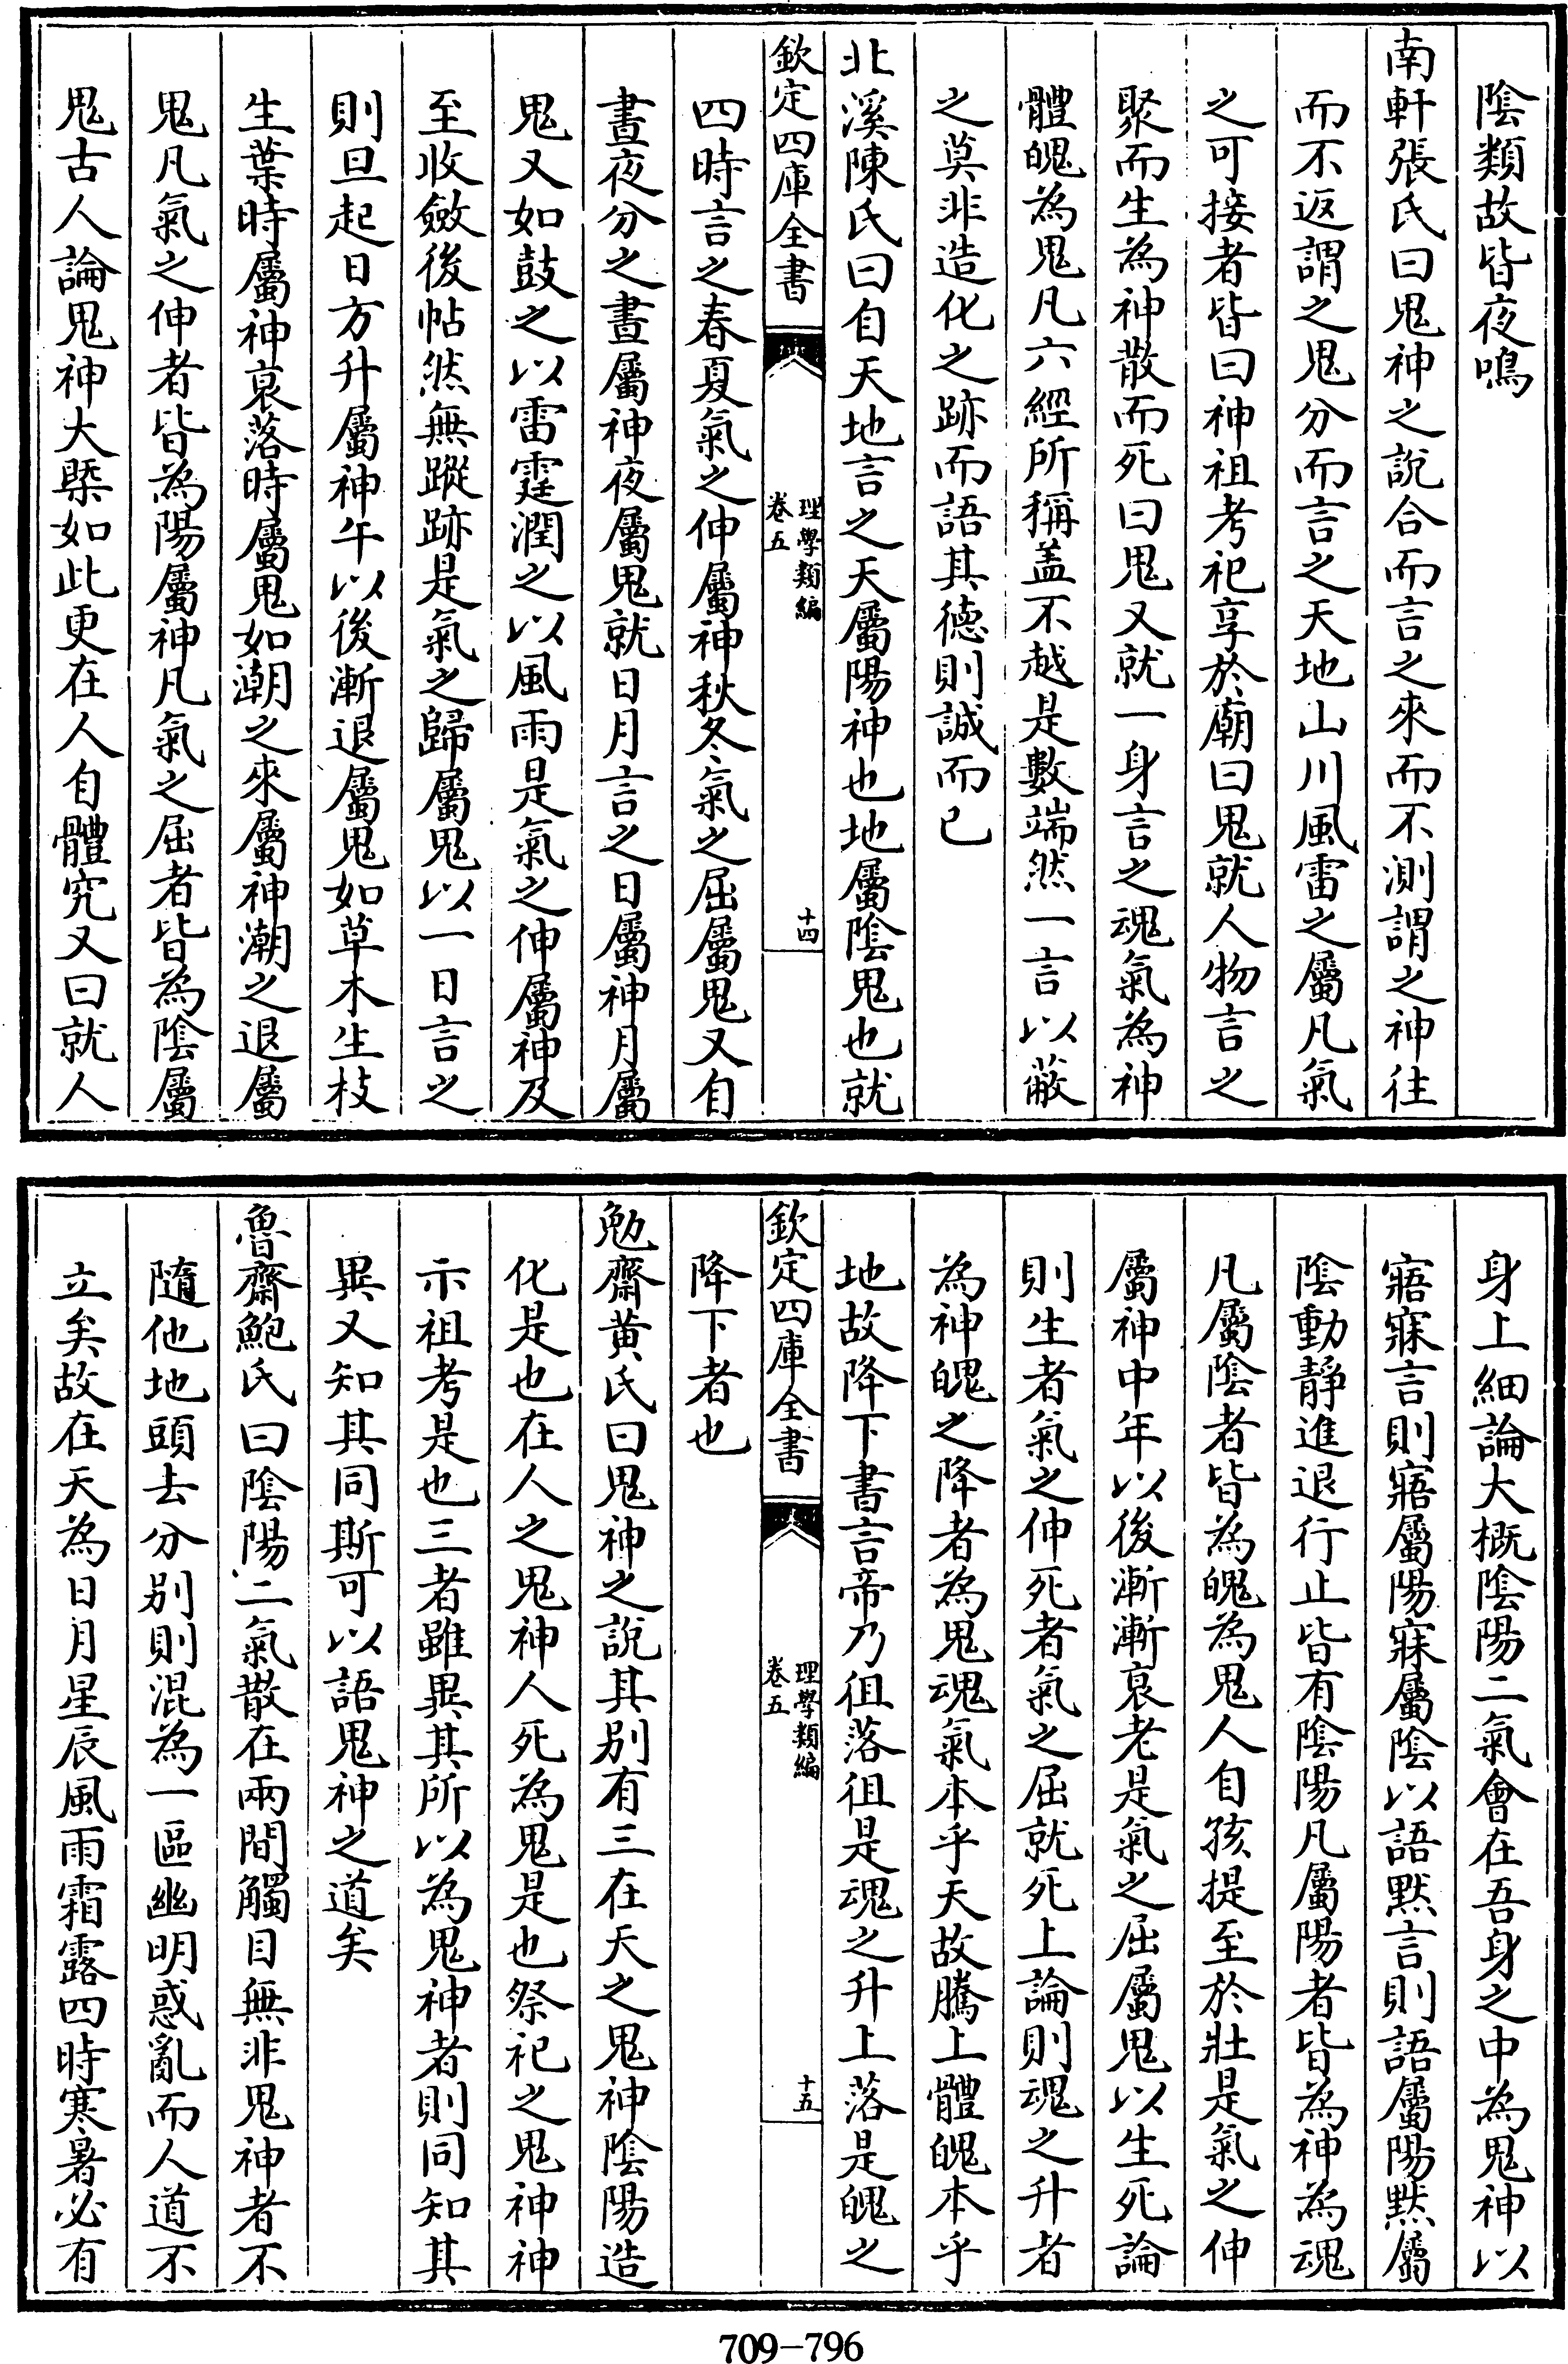 陰類故皆夜鳴
南軒張氏曰鬼神之說合而言之來而不測謂之神往
而不返謂之鬼分而言之天地山川風雷之屬凡氣
之可接者皆曰神祖考祀享於廟曰鬼就人物言之
聚而生為神散而死曰鬼又就一身言之魂氣為神
體魄為鬼凡六經所稱盖不越是數端然一言以蔽
之莫非造化之跡而語其德則誠而已
北溪陳氏曰自天地言之天屬陽神也地屬陰鬼也就
欽定四庫全書
理學類編
卷五
十四
四時言之春夏氣之伸屬神秋冬氣之屈屬鬼又自
晝夜分之晝屬神夜屬鬼就日月言之日屬神月屬
鬼又如鼓之以雷霆潤之以風雨是氣之伸屬神及
至收斂後帖然無蹤跡是氣之歸屬鬼以一日言之
則旦起日方升屬神午以後漸退屬鬼如草木生枝
生葉時屬神衰落時屬鬼如潮之來屬神潮之退屬
鬼凡氣之伸者皆為陽屬神凡氣之屈者皆為陰屬
鬼古人論鬼神大槩如此更在人自體究又曰就人
身上細論大概陰陽二氣會在吾身之中為鬼神以
寤寐言則寤屬陽寐屬陰以語黙言則語屬陽黙屬
陰動靜進退行止皆有陰陽凡屬陽者皆為神為魂
凡屬陰者皆為魄為鬼人自孩提至於壯是氣之伸
屬神中年以後漸漸衰老是氣之屈屬鬼以生死論
則生者氣之伸死者氣之屈就死上論則魂之升者
為神魄之降者為鬼魂氣本乎天故騰上體魄本乎
地故降下書言帝乃徂落徂是魂之升上落是魄之
欽定四庫全書
理學類編
卷五
十五
降下者也
勉齋黄氏曰鬼神之說其别有三在天之鬼神陰陽造
化是也在人之鬼神人死為鬼是也祭祀之鬼神神
示祖考是也三者雖異其所以為鬼神者則同知其
異又知其同斯可以語鬼神之道矣
魯齋鮑氏曰陰陽二氣散在兩間觸目無非鬼神者不
隨他地頭去分别則混為一區幽明惑亂而人道不
立矣故在天為日月星辰風雨霜露四時寒暑必有
709-796